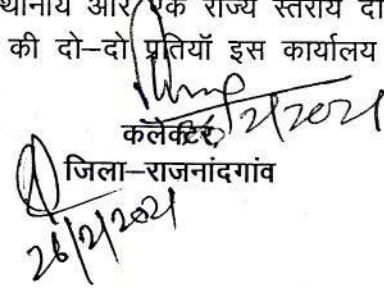 थानीय और एक राज्य स्तरीय दा
की दो–दो प्रतियॉ इस कार्यालय
कलेक्टर
जिला–राजनांदगांव
26/2/2021